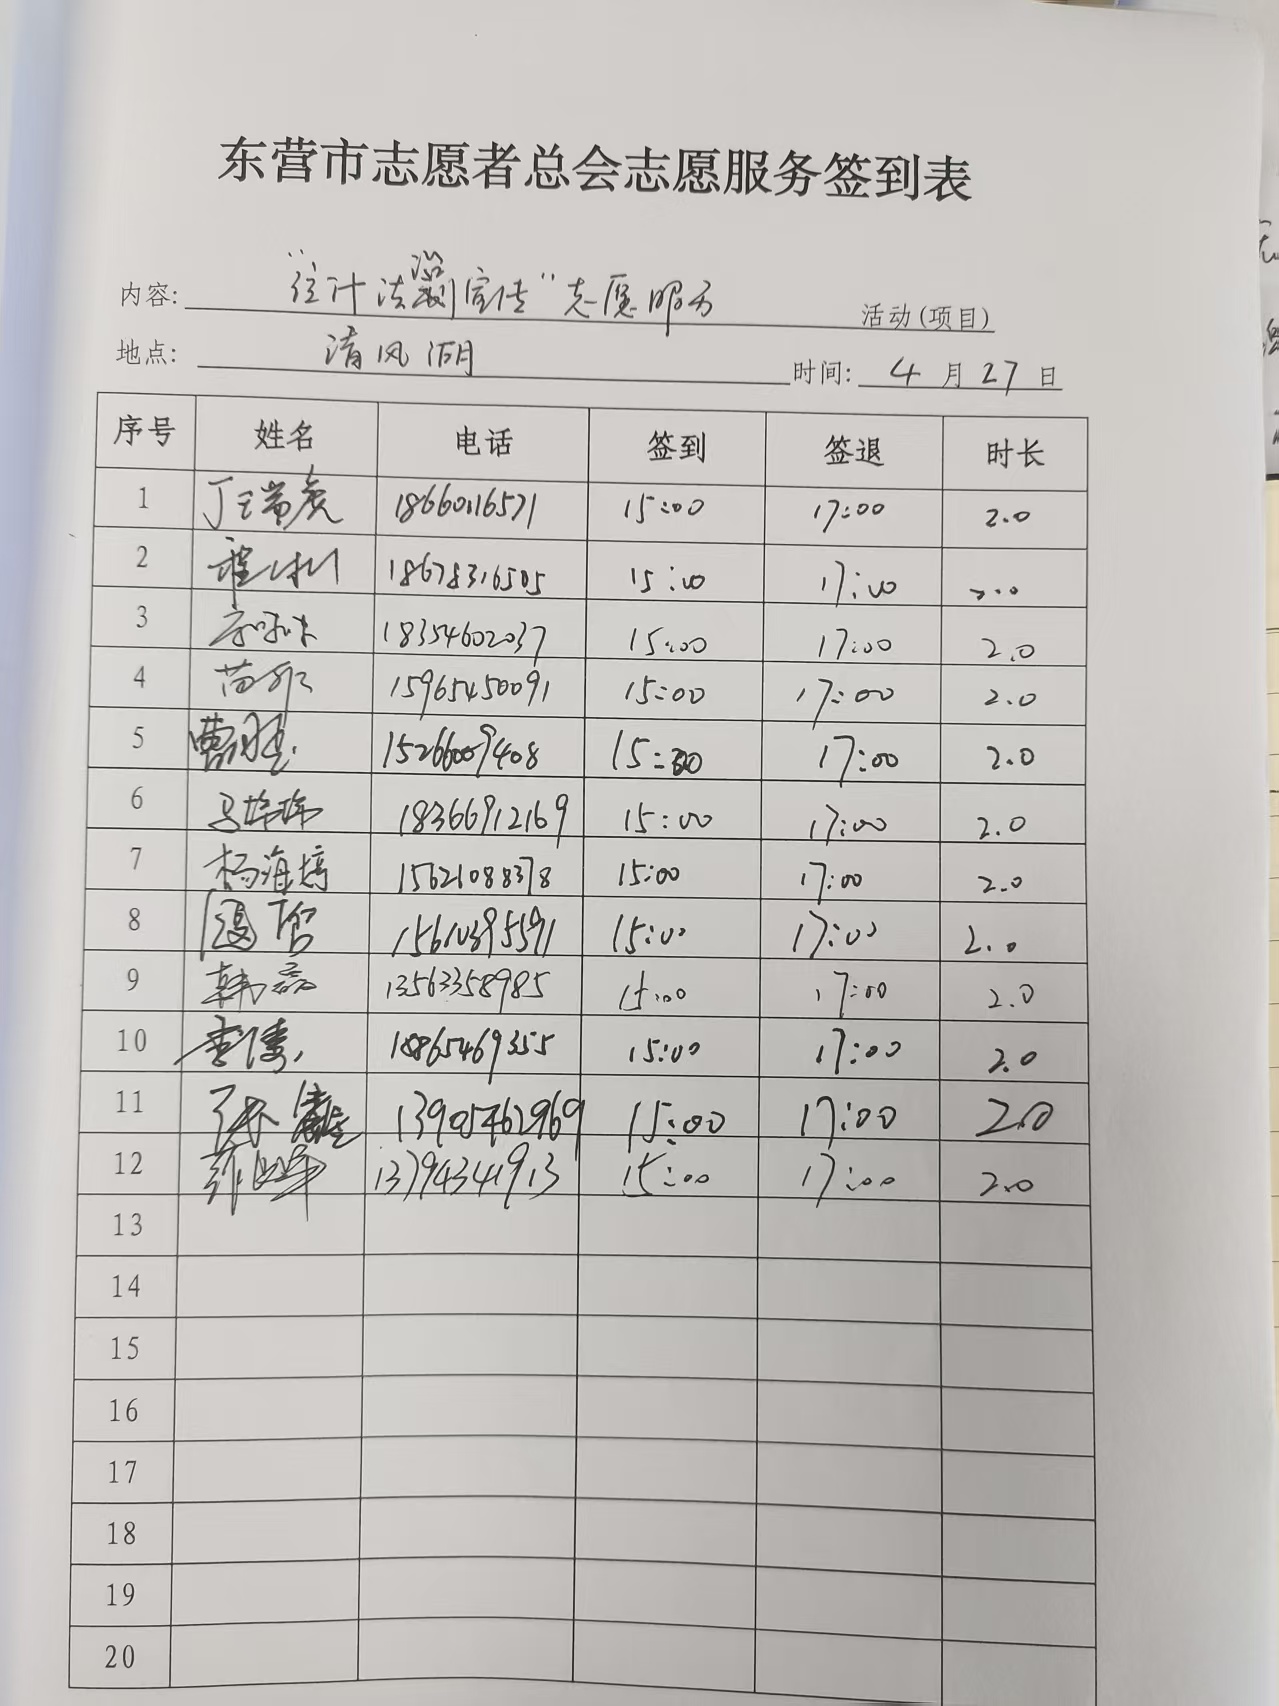 东营市志愿者总会志愿服务签到表
内容: "统计法治宣传"志愿服务 活动(项目)
地点: 清风湖 时间: 4 月 27 日
序号 姓名 电话 签到 签退 时长
1 18660116571 15:00 17:00 2.0
2 18678316505 15:00 17:00 2.0
3 18354602037 15:00 17:00 2.0
4 15965450091 15:00 17:00 2.0
5 15266009408 15:00 17:00 2.0
6 马婷婷 18366912169 15:00 17:00 2.0
7 杨海婷 15621088378 15:00 17:00 2.0
8 15610395591 15:00 17:00 2.0
9 韩磊 13563358985 15:00 17:00 2.0
10 李倩 18865469355 15:00 17:00 2.0
11 13905462969 15:00 17:00 2.0
12 13794341913 15:00 17:00 2.0
13
14
15
16
17
18
19
20